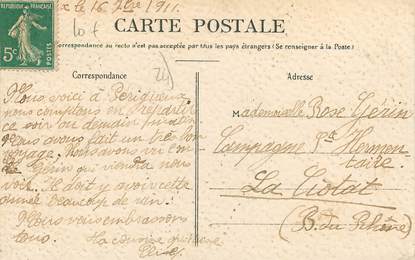 x le 16 7bre 1911.
10 f
CARTE POSTALE
REPUBLIQUE FRANÇAISE
5c
Correspondance au recto n'est pas acceptée par tous les pays étrangers (Se renseigner à la Poste.)
Correspondance
Nous voici à Périgueux
nous comptons en repartir
ce soir ou demain matin
Nous avons fait un très bon
voyage. Nous avons vu
Gérin qui viendra nous
voir. Il doit y avoir cette
année beaucoup de vin.
Nous vous embrassons
tous.
Ta cousine qui
Adresse
Mademoiselle Rose Gérin
Campagne Hermen
taire
La Ciotat
(B. du Rhône)